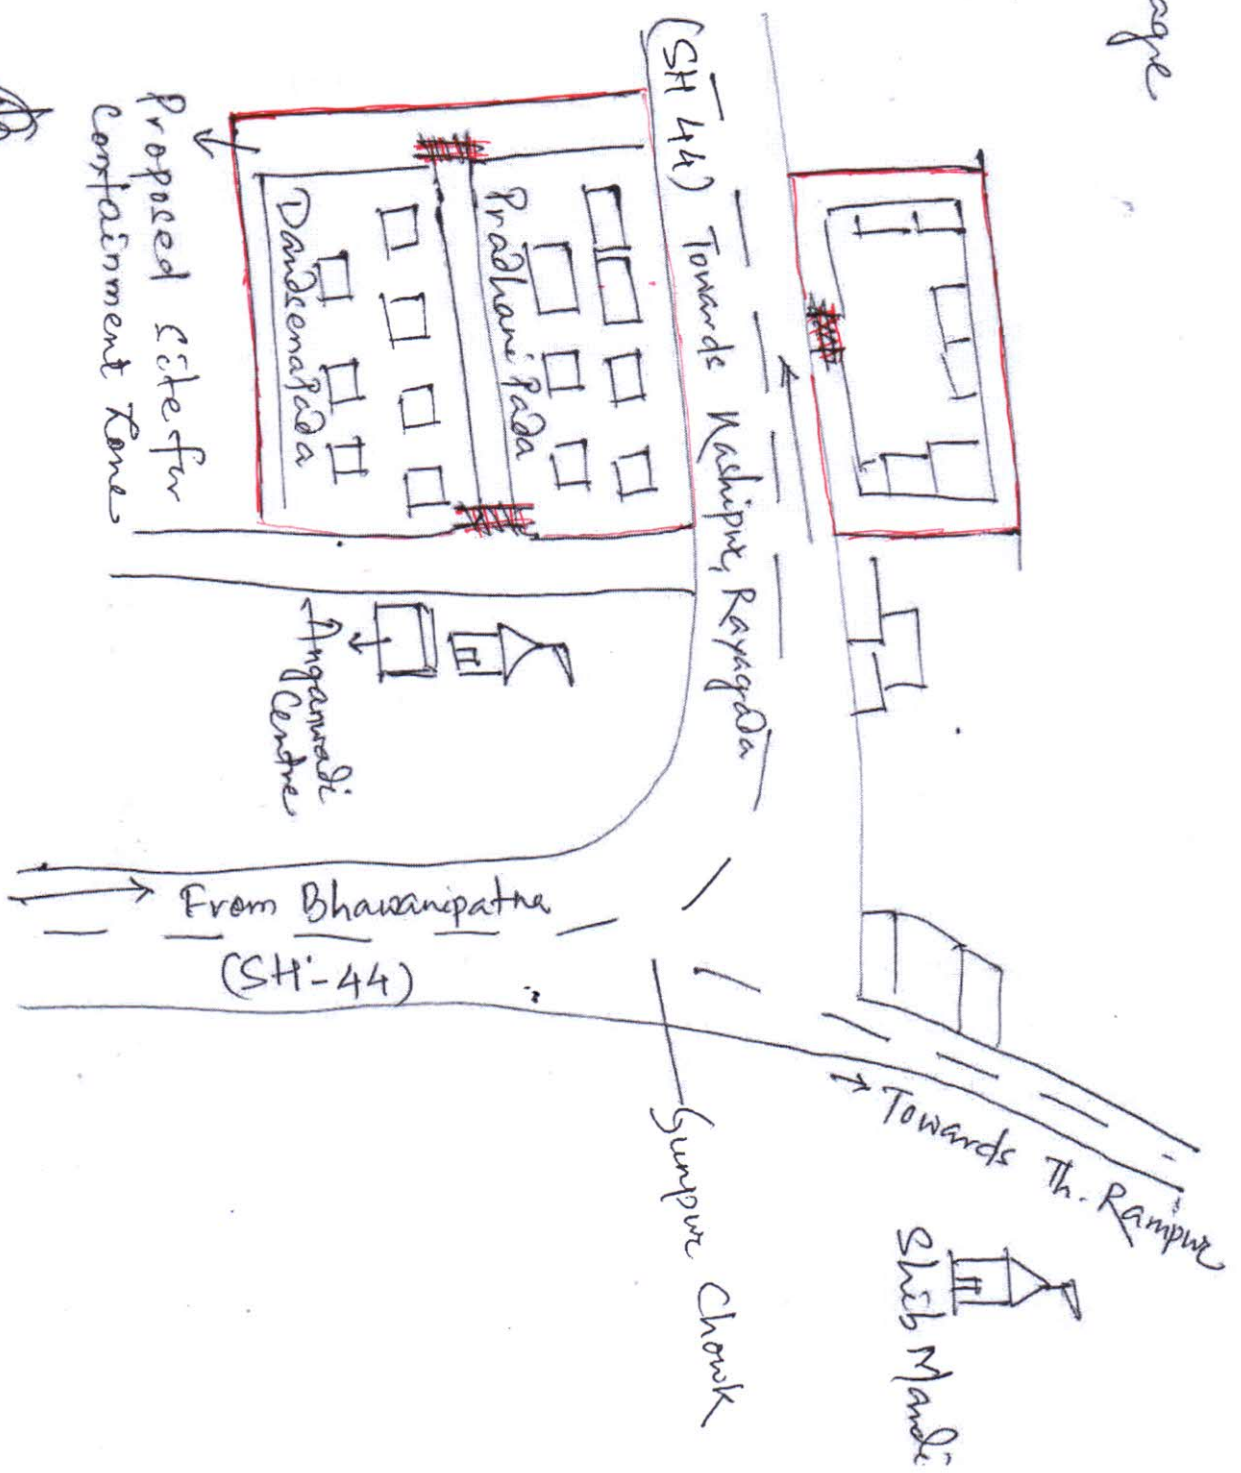 age
(SH 44) Towards Kashipur, Rayagada
Pradhani Pada
Dandsena Pada
Proposed Site for
Containment Zone
Anganwadi
Centre
From Bhawanipatna
(SH-44)
Towards Th. Rampur
Gunpur Chowk
Shib Mandi